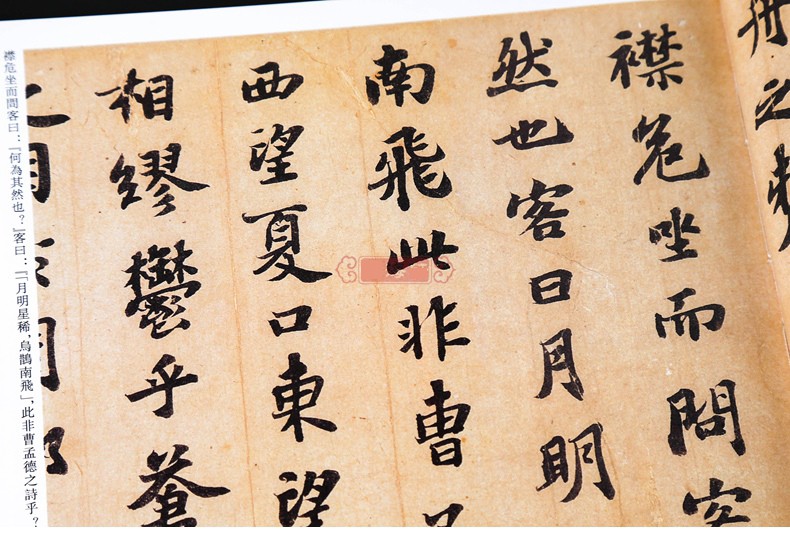 舟之
襟危坐而問客
然也客曰月明
南飛此非曹
西望夏口東望
相繆鬱乎蒼
襟危坐而問客曰：『何為其然也？』客曰：『「月明星稀，烏鵲南飛」，此非曹孟德之詩乎？